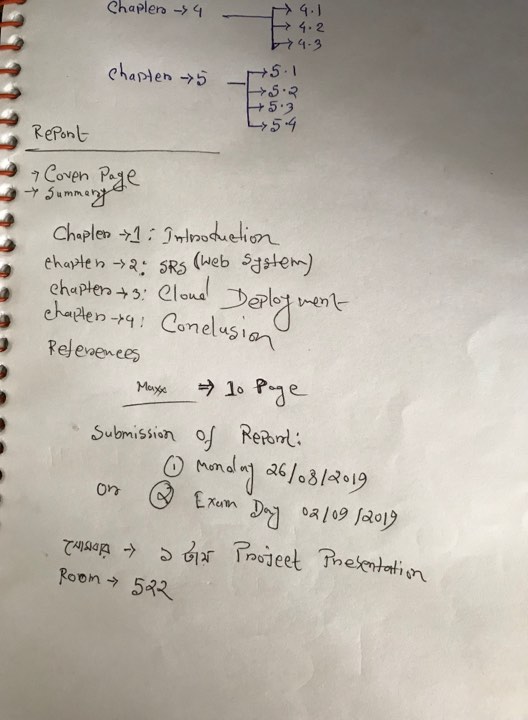 Chapter → 4
→ 4.1
→ 4.2
→ 4.3
Chapter → 5
→ 5.1
→ 5.2
→ 5.3
→ 5.4
Report
→ Cover Page
→ Summary
Chapter → 1: Introduction
chapter → 2: SRS (Web System)
chapter → 3: Cloud Deployment
chapter → 4: Conclusion
References
Max ⇒ 10 Page
Submission of Report:
① Monday 26/08/2019
or ② Exam Day 02/09/2019
সোমবার → ১ টায় Project Presentation
Room → 522